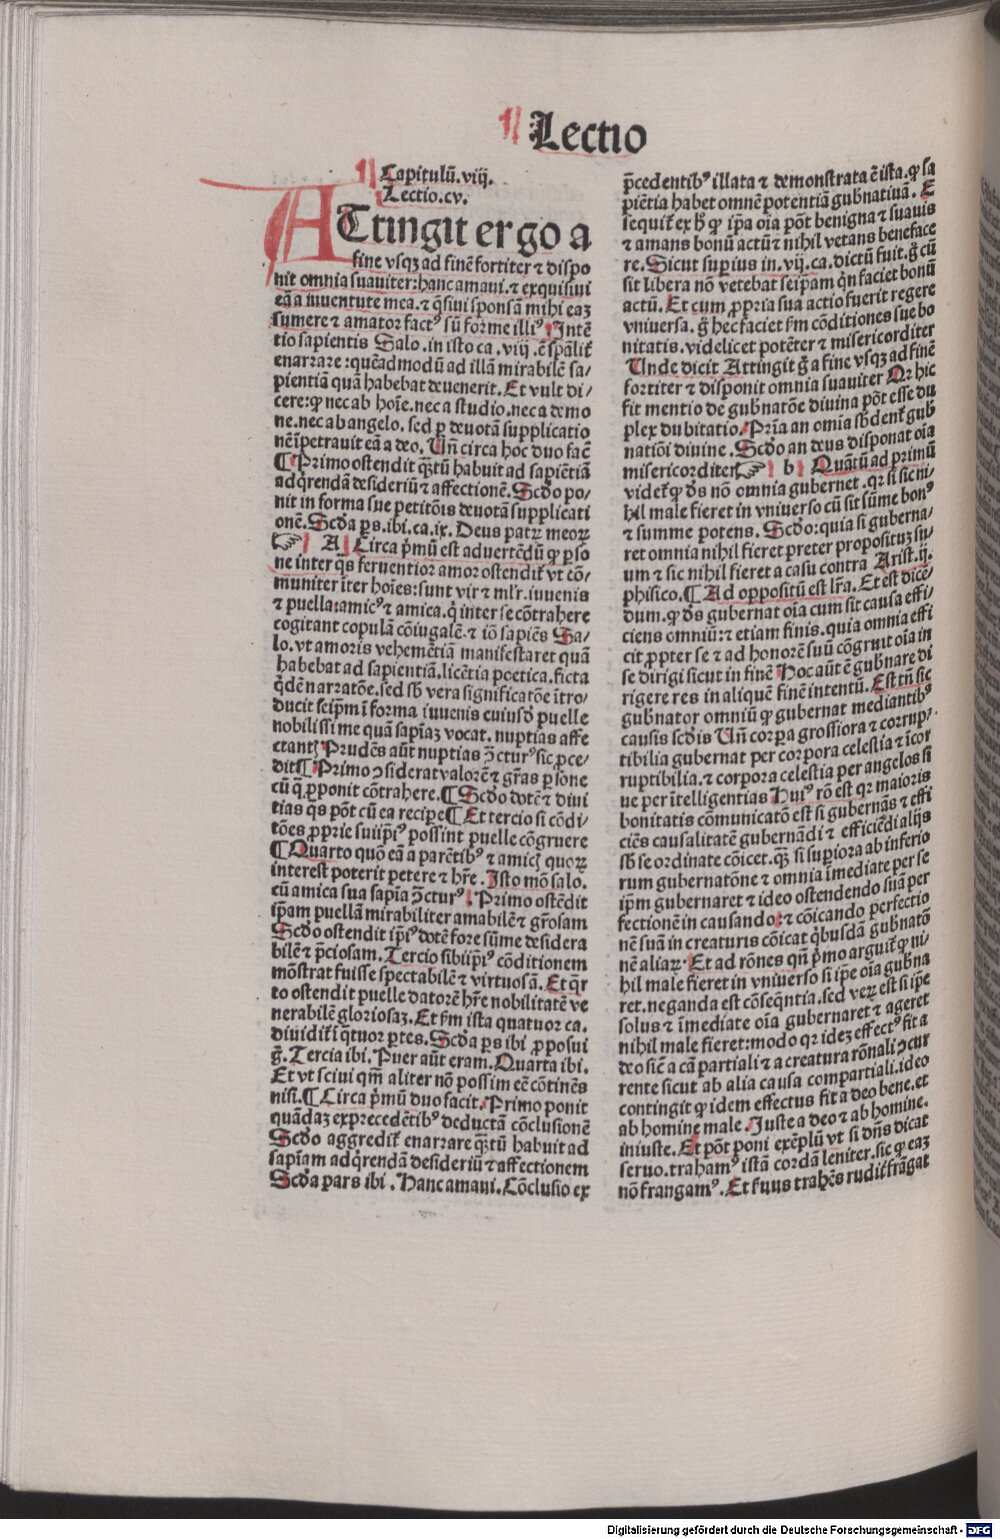 Lectio
Capitulū.viij.
Lectio.cv.
ATtingit ergo a
fine vsqꝫ ad finē fortiter ⁊ dispo
nit omnia suauiter: hanc amaui. ⁊ exquisiui
eā a iuuentute mea. ⁊ q̄siui sponsā mihi eaꝫ
sumere ⁊ amator factꝰ sū forme illiꝰ Intē
tio sapientis Salo. in isto ca. viij. ē sp̄alit̄
enarrare: quēadmodū ad illā mirabilē sa-
pientiā quā habebat deuenerit. Et vult di/
cere: ꝙ nec ab hoīe. nec a studio. nec a demo
ne. nec ab angelo. sed ꝑ deuotā supplicatio
nē īpetrauit eā a deo. Un̄ circa hoc duo facē
¶ Primo ostendit q̄ꝫtū habuit ad sapiētiā
adq̄rendā desideriū ⁊ affectionē. Scd̄o po/
nit in forma sue petitōis deuotā supplicati
onē. Scd̄a ꝑs. ibi. ca. ix. Deus patꝝ meoꝝ
☞ A Circa p̄mū est aduertēdū ꝙ ꝑso
ne inter q̄s feruentior amor ostendit̄ vt cō/
muniter īter hoīes: sunt vir ⁊ ml̄r. iuuenis
⁊ puella: amicꝰ ⁊ amica. q̄ inter se cōtrahere
cogitant copulā cōiugalē. ⁊ iō sapiēs Sa/
lo. vt amoris vehemētiā manifestaret quā
habebat ad sapientiā. licētia poetica. ficta
q̄dē narratōe. sed sb̄ vera significatōe ītro/
ducit seip̄m ī forma iuuenis cuiusd̄ puelle
nobilissime quā sapīaꝫ vocat. nuptias affe
ctantꝭ Prudēs aūt nuptias ꝯcturꝰ sic ꝓce/
dit ¶ Primo ꝯsiderat valorē ⁊ gr̄as ꝑsone
cū q̄ ꝓponit cōtrahere. ¶ Scd̄o dotē ⁊ diui
tias q̄s pōt cū ea recipe ¶ Et tercio si cōdi/
tōes ꝓprie sui ip̄iꝰ possint puelle cōgruere
¶ Quarto quō eā a parētibꝰ ⁊ amicꝭ quoꝝ
interest poterit petere ⁊ hr̄e. Isto mō salo.
cū amica sua sapīa ꝯcturꝰ. Primo ostēdit
ip̄am puellā mirabiliter amabilē ⁊ gr̄osam
Scd̄o ostendit ip̄iꝰ dotē fore sūme desidera
bilē ⁊ p̄ciosam. Tercio sibiip̄iꝰ cōditionem
mōstrat fuisse spectabilē ⁊ virtuosā. Et q̄r
to ostendit puelle datorē hr̄e nobilitatē ve
nerabilē gloriosaꝫ. Et ẜm ista quatuor ca.
diuidit̄ ī q̄tuor ꝑtes. Scd̄a ꝑs ibi ꝓposui
g̊. Tercia ibi. Puer aūt eram. Quarta ibi.
Et vt sciui qm̄ aliter nō possim eē cōtinēs
nisi. ¶ Circa p̄mū duo facit. Primo ponit
quādaꝫ ex precedētibꝰ deductā cōclusionē
Scd̄o aggredit̄ enarrare q̄ꝫtū habuit ad
sapīam adq̄rendā desideriū ⁊ affectionem
Scd̄a pars ibi. Hanc amaui. Cōclusio ex
p̄cedentibꝰ illata ⁊ demonstrata ē ista. ꝙ sa
piētia habet omnē potentiā gub̄natiuā. E
sequit̄ ex h̄ ꝙ ip̄a oīa pōt benigna ⁊ suauis
⁊ amans bonū actū ⁊ nihil vetans beneface
re. Sicut superius in. vij. ca. dictū fuit. g̊ cū
sit libera nō vetebat seipam q̄n faciet bonū
actū. Et cum ꝓpria sua actio fuerit regere
vniuersa. g̊ hec faciet ẜm cōditiones sue bo
nitatis. videlicet potēter ⁊ misericorditer
Unde dicit Attingit g̊ a fine vsqꝫ ad finē
fortiter ⁊ disponit omnia suauiter Qr hic
fit mentio de gub̄natōe diuina pōt esse du
plex dubitatio. Prīa an omīa sb̄dent̄ gub̄
nationi diuine. Scd̄o an deus disponat oīa
misericorditer ☞ b Quātū ad primū
videt̄ ꝙ dꝰ nō omnia gubernet. qr si sic ni-
hil male fieret in vniuerso cū sit sūme bonꝰ
⁊ summe potens. Scd̄o: quia si guberna-
ret omnia nihil fieret preter propositūꝫ su-
um ⁊ sic nihil fieret a casu contra Arist. ij.
phisico. ¶ Ad oppositū est lr̄a. Et est dicē/
dum. ꝙ dꝰ gubernat oīa cum sit causa effi/
ciens omniū: ⁊ etiam finis. quia omnia effi
cit ꝓpter se ⁊ ad honorē suū cōgruit oīa in
se dirigi sicut in finē Hoc aūt ē gub̄nare di
rigere res in aliquē finē intentū. Est tn̄ sic
gub̄nator omniū ꝙ gubernat mediantibꝰ
causis scd̄is Un̄ corꝑa grossiora ⁊ corrup/
tibilia gubernat per corpora celestia ⁊ īcor
ruptibilia. ⁊ corpora celestia per angelos si
ue per ītelligentias Huiꝰ rō est qr maioris
bonitatis cōmunicatō est si gubernās ⁊ effi
ciēs causalitatē gubernādi ⁊ efficiēdi alijs
sb̄ se ordinate cōicet. q̄ꝫ si supiora ab inferio
rum gubernatōne ⁊ omnia īmediate per se
ip̄m gubernaret ⁊ ideo ostendendo suā per
fectionē in causando: ⁊ cōicando perfectio
nē suā in creaturis cōicat q̄busdā gub̄natō
nē aliaꝝ. Et ad rōnes qn̄ p̄mo arguit̄ ꝙ ni/
hil male fieret in vniuerso si ip̄e oīa gub̄na
ret. neganda est cōseq̄ntia. sed veꝝ est si ip̄e
solus ⁊ īmediate oīa gubernaret ⁊ ageret
nihil male fieret: modo qr ideꝫ effectꝰ fit a
deo sic̄ a cā partiali ⁊ a creatura rōnali ꝯcur
rente sicut ab alia causa compartiali. ideo
contingit ꝙ idem effectus fit a deo bene. et
ab homine male. Juste a deo ⁊ ab homine.
iniuste. Et pōt poni exēplū vt si dn̄s dicat
seruo. trahamꝰ istā cordā leniter. sic ꝙ eaꝫ
nō frangamꝰ. Et s̄uus trahēs rudit̄ frāgat
Digitalisierung gefördert durch die Deutsche Forschungsgemeinschaft - DFG